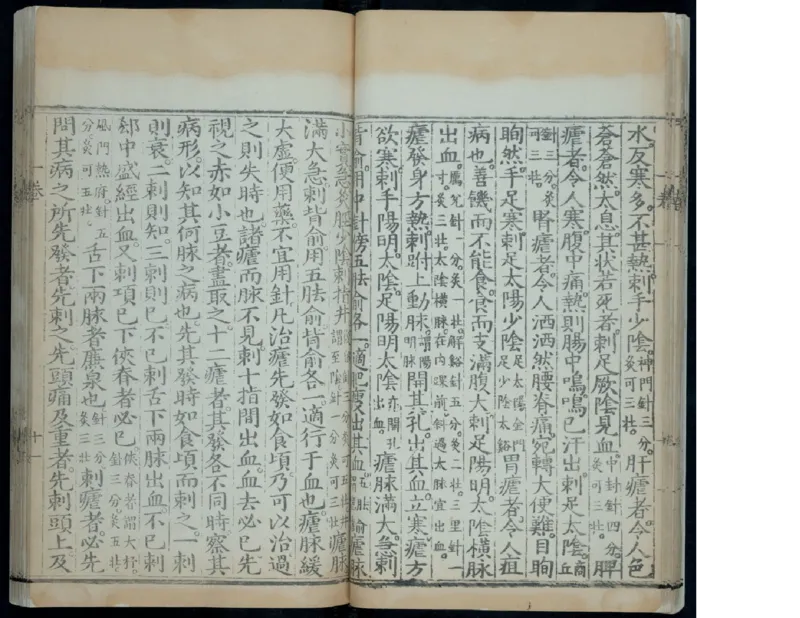 水。反寒多。不甚熱。刺手少陰。神門針三分。灸可三壯。肝瘧者。令人色
蒼蒼然。太息。其狀若死者。刺足厥陰見血。中封針四分。灸可三壯。脾
瘧者。令人寒。腹中痛。熱則腸中鳴。鳴已汗出。刺足太陰。商丘
針三分。灸可三壯。腎瘧者。令人洒洒然。腰脊痛。宛轉大便難。目眴
眴然。手足寒。刺足太陽少陰。足太陽金門足少陰太谿胃瘧者。令人疸
病也。善饑而不能食。食而支滿腹大。刺足陽明太陰橫脉
出血。厲兌針一分。灸一壯。解谿針五分。灸二壯。三里針一寸。灸三壯。太陰橫脉。在內踝前。斜過大脉宜出血。
瘧發身方熱。刺跗上動脉。謂陽明脉開其孔。出其血。立寒。瘧方
欲寒。刺手陽明。太陰。足陽明太陰。亦開孔出血。瘧脉滿大。急。刺
背俞。用中針。傍五胠俞各一。適肥瘦。出其血。五胠俞瘧脉
小實急。灸脛少陰。刺指井。瘧脉
滿大急。刺背俞。用五胠俞背俞各一。適行于血也。瘧脉緩
大虛。便用藥。不宜用針。凡治瘧。先發如食頃。乃可以治。過
之則失時也。諸瘧而脉不見。刺十指間出血。血去必已。先
視之赤如小豆者。盡取之。十二瘧者。其發各不同時。察其
病形。以知其何脉之病也。先其發時如食頃而刺之。一刺
則衰。二刺則知。三刺則已。不已。刺舌下兩脉出血。不已。刺
郄中盛經出血。又刺項已下俠脊者必已。俠脊者謂大杼。針三分。灸五壯。
風門熱府。針五分。灸可五壯。舌下兩脉者。廉泉也。針三分。灸三壯。刺瘧者。必先
問其病之所先發者。先刺之。先頭痛及重者。先刺頭上及